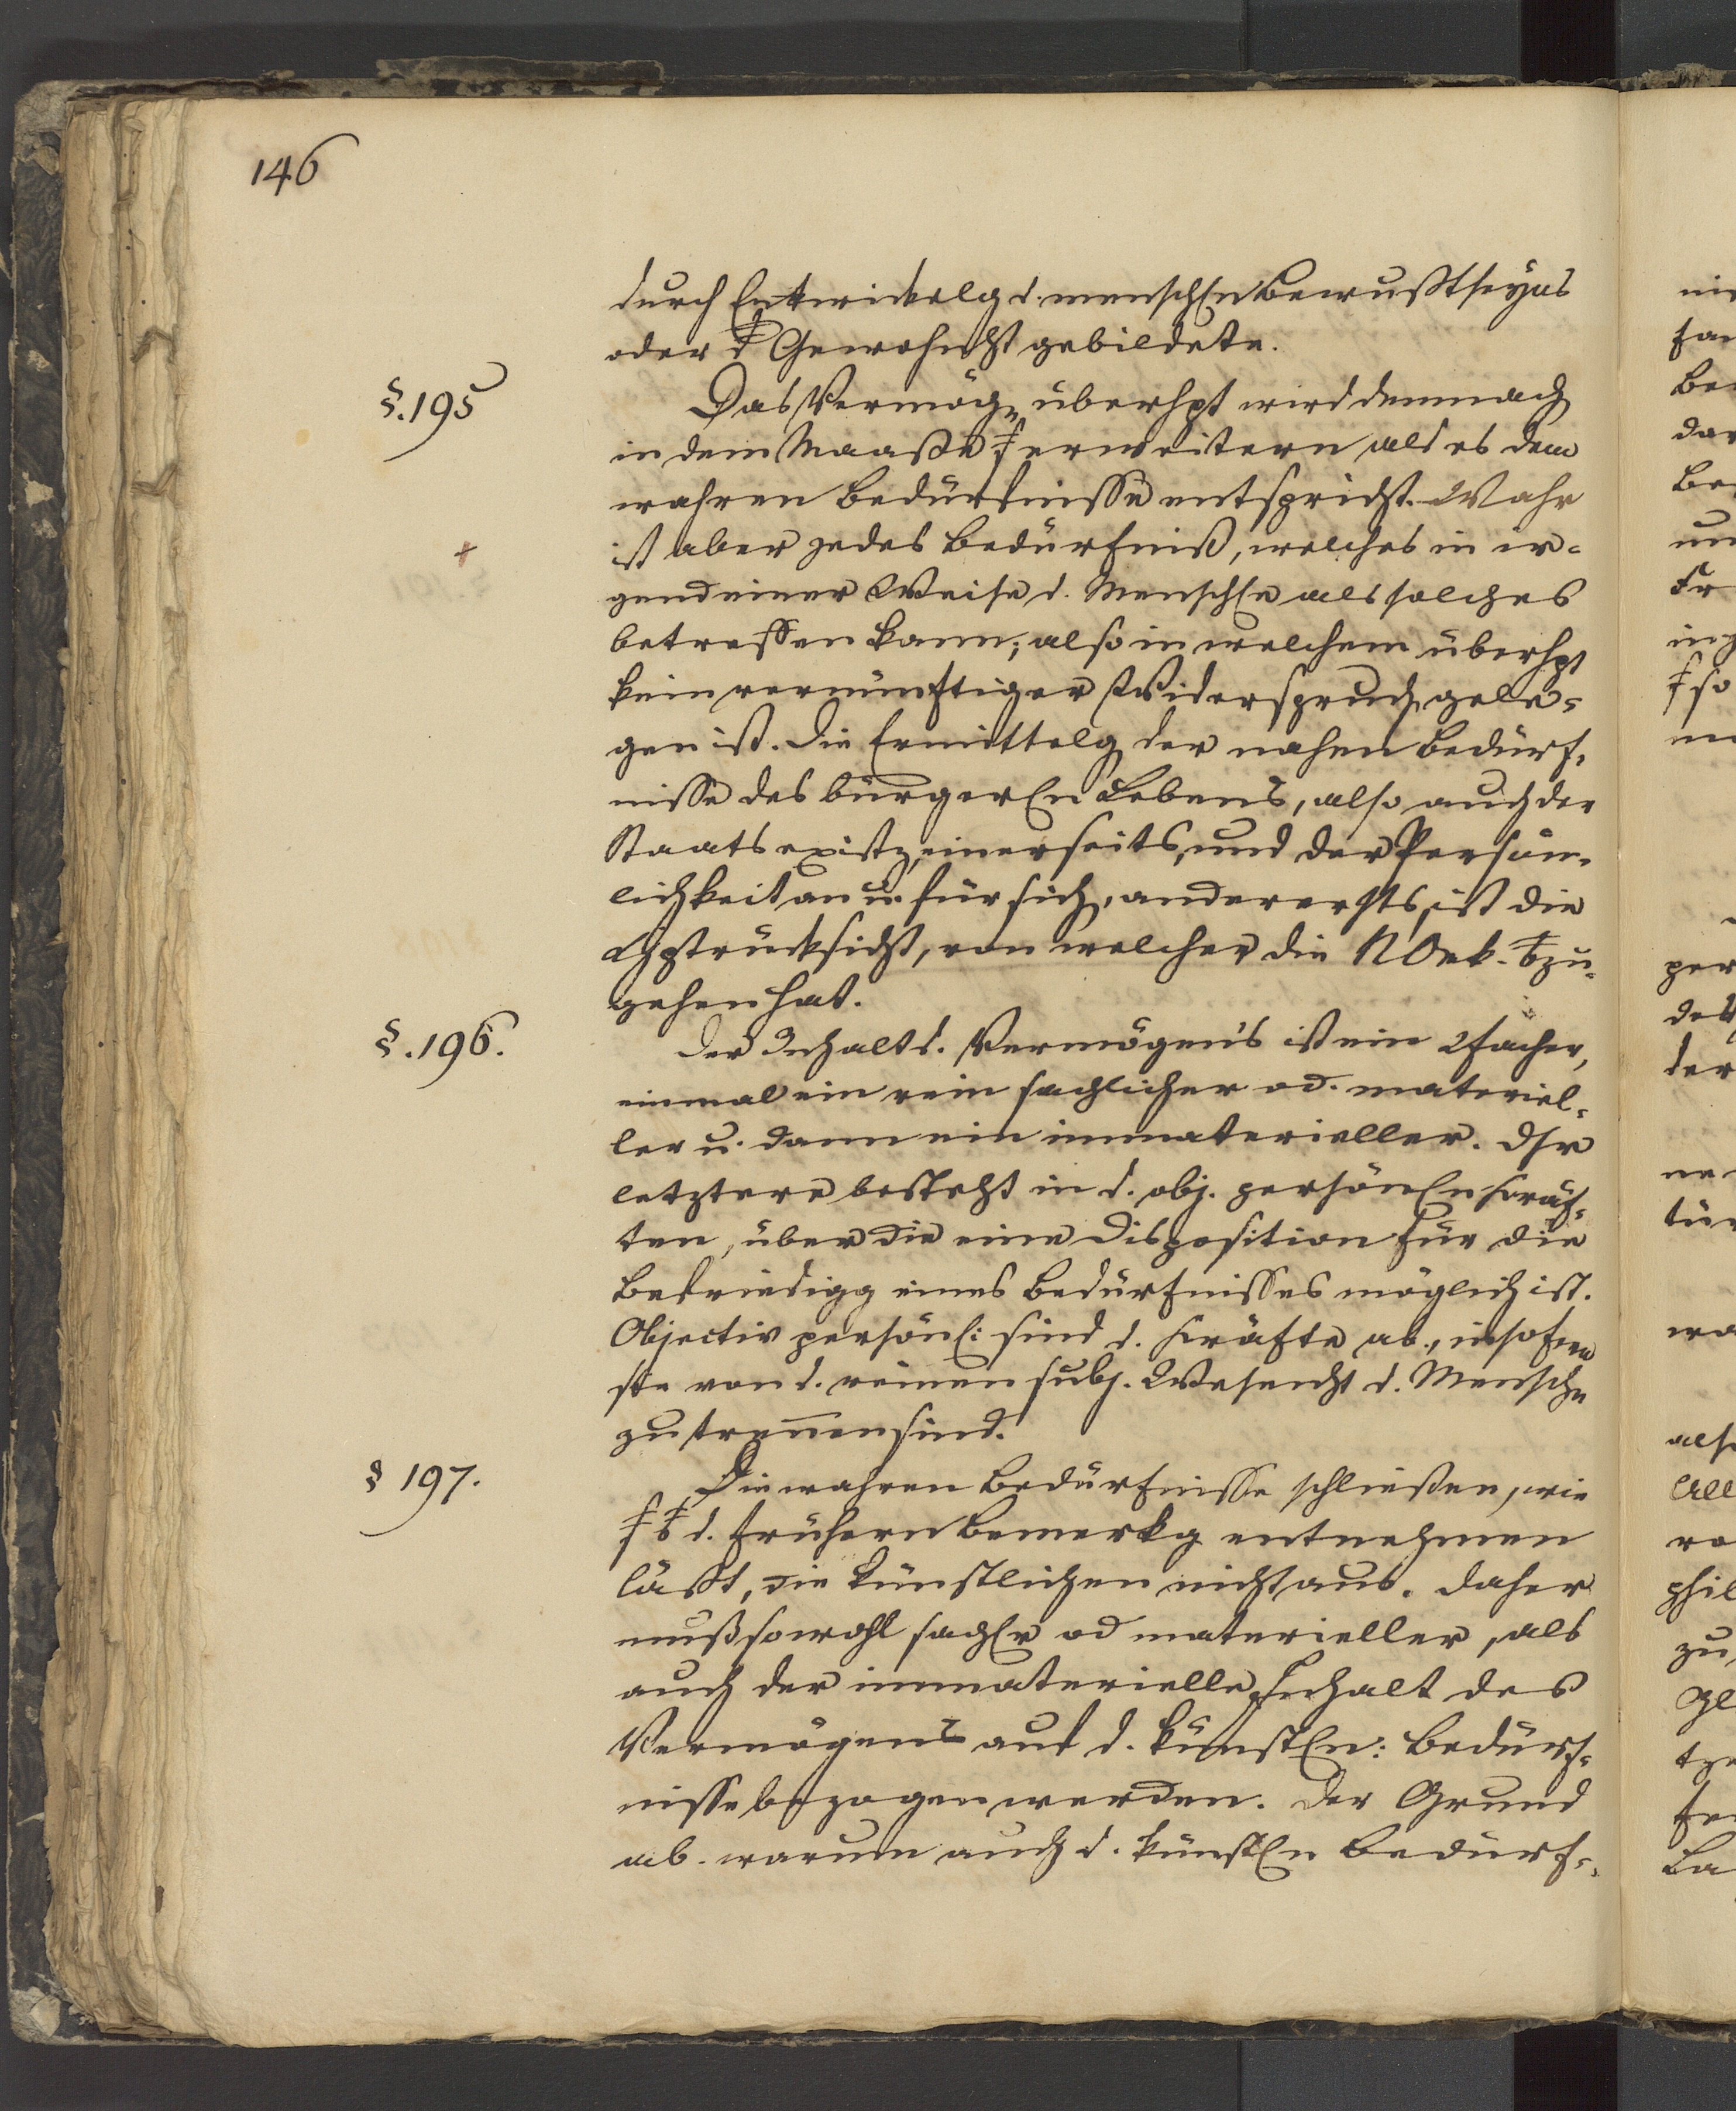 146
durch Entwickelg d. menschen Bewußtseyns
oder d Gewohnht gebildete.
§. 195
Das Vermög. überhpt wird demnach
in dem Maaße erweitern als es dem
wahren Bedürfnisse entspricht. Wahr
ist aber jedes Bedürfniß, welches in ir-
gend einer Weise d. Menschen als solches
betreffen kann; also in welchem überhpt
kein vernünftiger Widerspruch gele-
gen ist. Die Ermittelg der wahren Bedürf-
nisse des bürgeren Lebens, also auch der
Staatsexistz, einerseits, und der Persön-
lichkeit an u. für sich, anderersts, ist die
Hptrücksicht, von welcher die NOek. szu-
gehen hat.
§. 196.
Der Inhalt d. Vermögens ist ein 2facher,
einmal ein rein sachlicher od. materiel-
ler u. dann ein immaterieller. Der
letztere besteht in d. obj. persönen Kräf-
ten, über die eine Disposition für die
Befriedigg eines Bedürfnisses möglich ist.
Objectiv persönl: sind d. Kräfte ab., insofern
sie von d. reinen subj. Wesenht d. Mensche
zu trennen sind.
§ 197.
Die wahren Bedürfnisse schließen, wie
d. frühern Bemerkg entnehmen
läßt, die künstlichen nicht aus. Daher
muß sowohl sacher od materieller, als
auch der immaterielle Inhalt des
Vermögens auf d. künsten: Bedürf-
nisse bezogen werden. Der Grund
ab. warum auch d. künsten Bedürf-